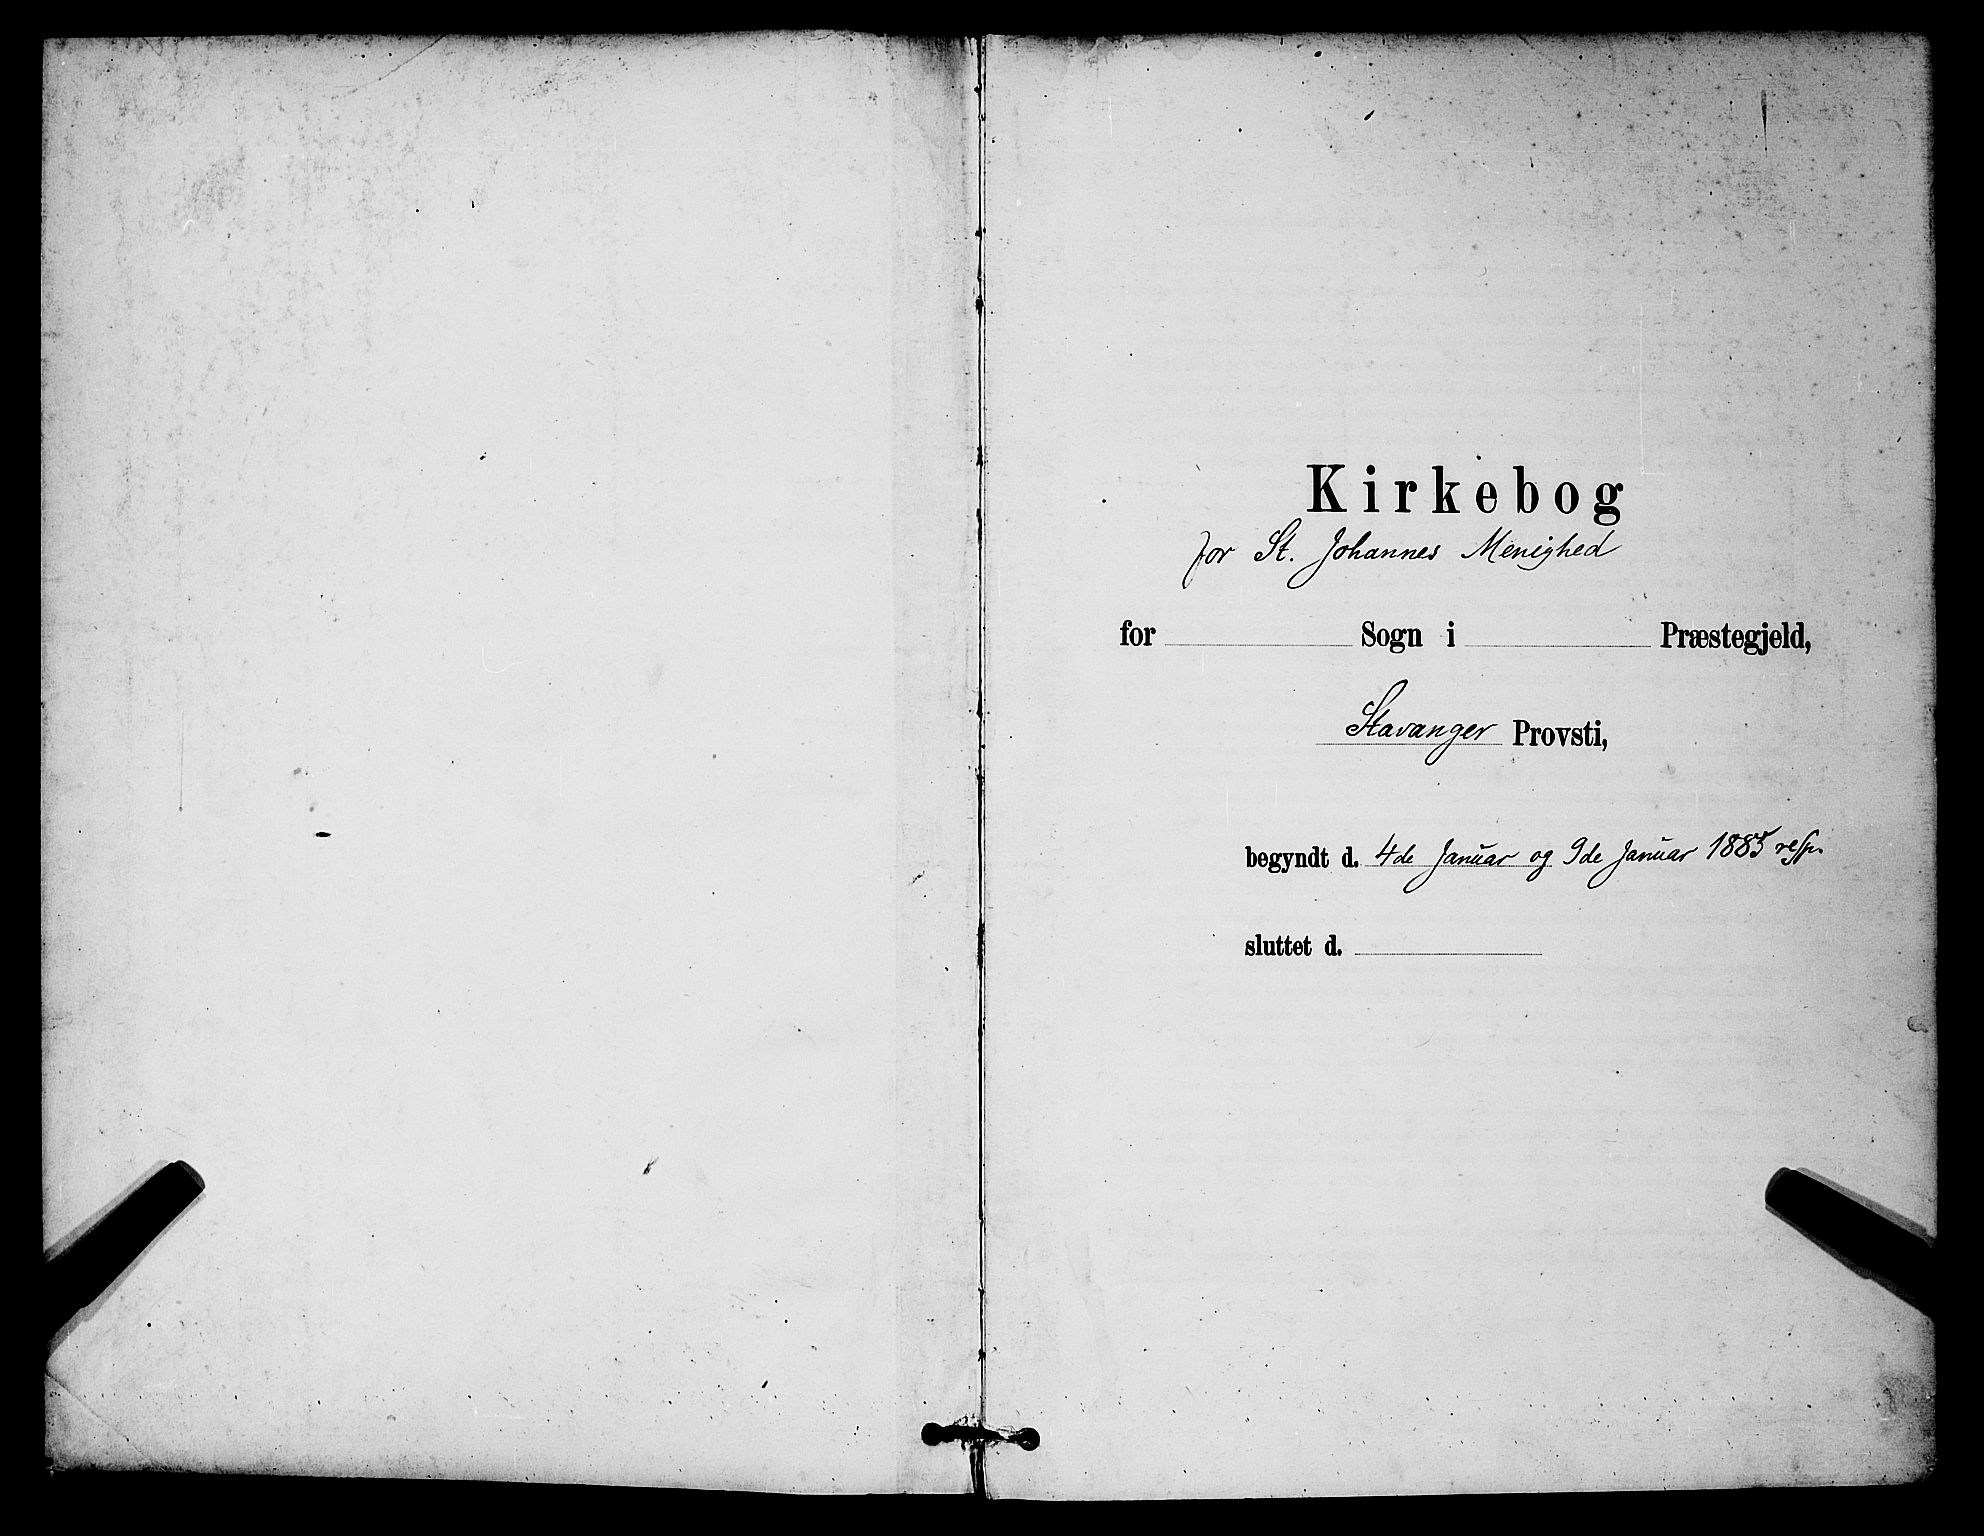 Kirkebog
for St. Johannes Menighed
for Sogn i Præstegjeld,
Stavanger Provsti,
begyndt d. 4de Januar og 9de Januar 1885 resp.
sluttet d.